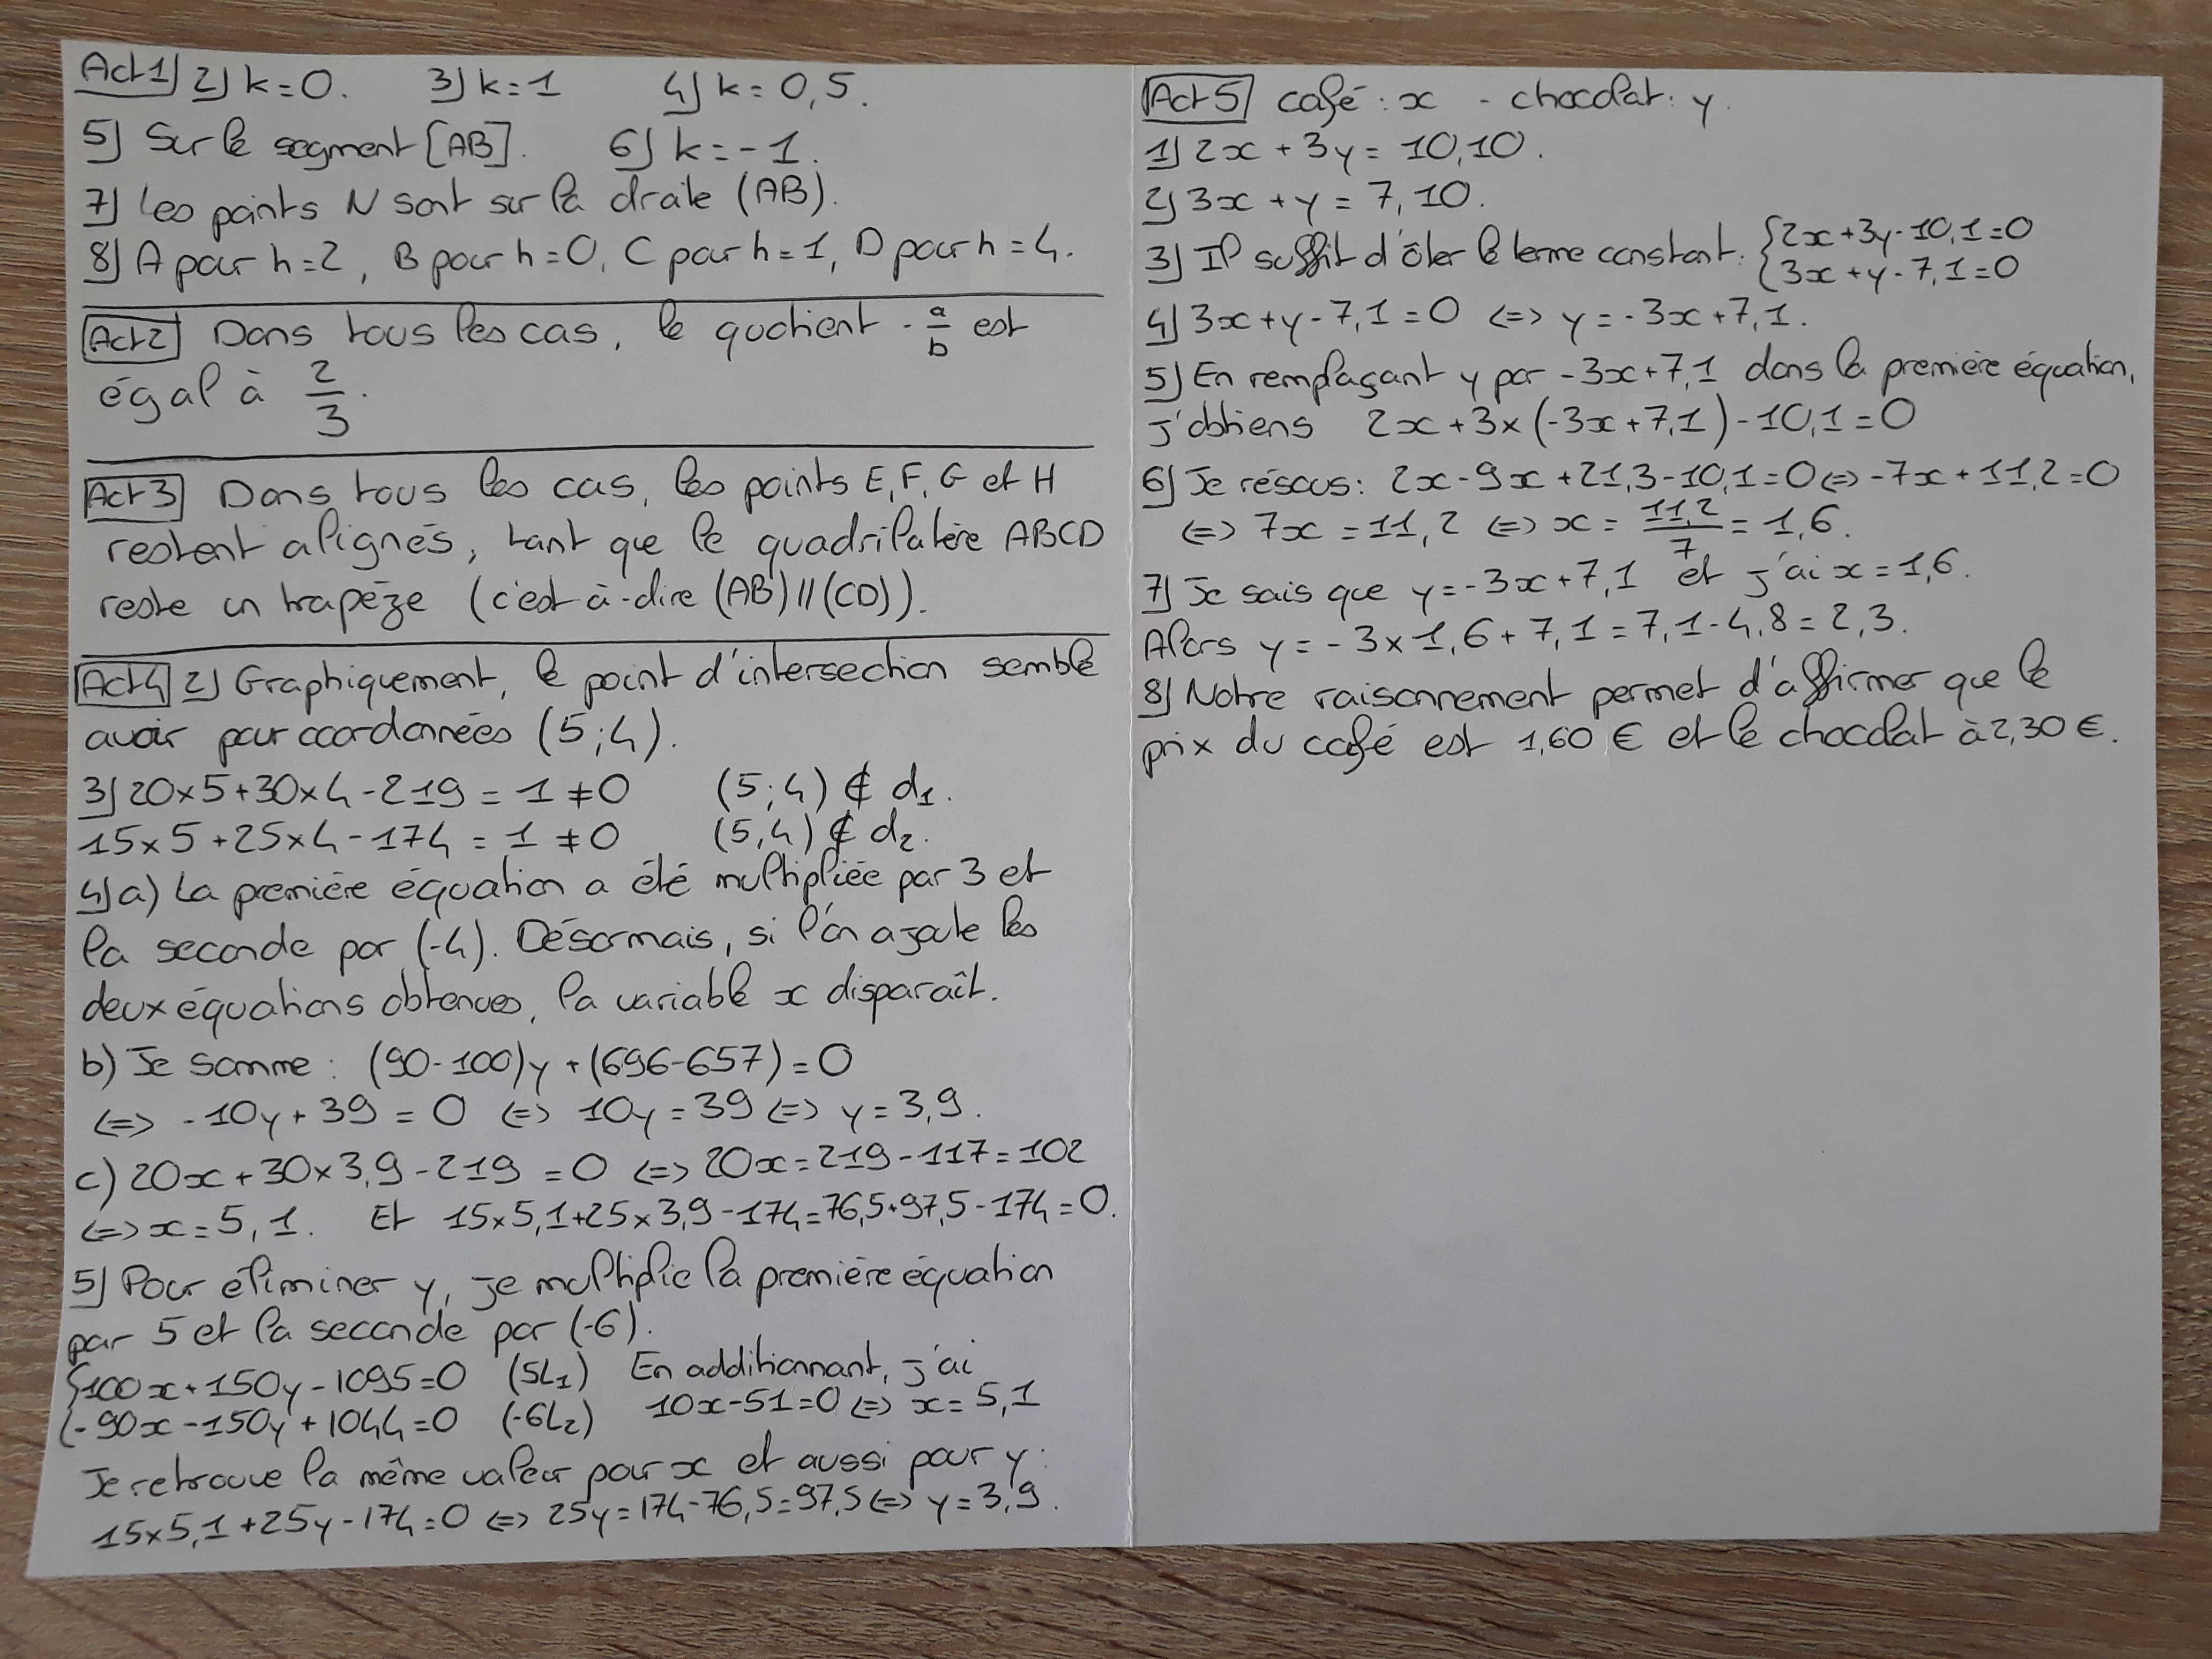 Act 1 2) k = 0. 3) k = 1 4) k = 0,5.
5) Sur le segment [AB]. 6) k = -1.
7) Les points N sont sur la droite (AB).
8) A pour h = 2, B pour h = 0, C pour h = 1, D pour h = 4.
Act 2 Dans tous les cas, le quotient -a/b est
égal à 2/3.
Act 3 Dans tous les cas, les points E, F, G et H
restent alignés, tant que le quadrilatère ABCD
reste un trapèze (c'est-à-dire (AB)//(CD)).
Act 4 2) Graphiquement, le point d'intersection semble
avoir pour coordonnées (5;4).
3) 20×5+30×4-219 = 1 ≠ 0 (5;4) ∉ d₁.
15×5+25×4-174 = 1 ≠ 0 (5,4) ∉ d₂.
4) a) La première équation a été multipliée par 3 et
la seconde par (-4). Désormais, si l'on ajoute les
deux équations obtenues, la variable x disparaît.
b) Je somme : (90-100)y + (696-657) = 0
<=> -10y + 39 = 0 <=> 10y = 39 <=> y = 3,9.
c) 20x + 30×3,9 - 219 = 0 <=> 20x = 219-117 = 102
<=> x = 5,1. Et 15×5,1+25×3,9-174 = 76,5+97,5-174 = 0.
5) Pour éliminer y, je multiplie la première équation
par 5 et la seconde par (-6).
{100x+150y-1095=0 (5L₁) En additionnant, j'ai
{-90x-150y+1044=0 (-6L₂) 10x-51=0 <=> x = 5,1
Je retrouve la même valeur pour x et aussi pour y :
15×5,1+25y-174=0 <=> 25y=174-76,5=97,5 <=> y = 3,9.
Act 5 café : x - chocolat : y.
1) 2x + 3y = 10,10.
2) 3x + y = 7,10.
3) Il suffit d'ôter le terme constant. {2x+3y-10,1=0
{3x+y-7,1=0
4) 3x+y-7,1=0 <=> y = -3x+7,1.
5) En remplaçant y par -3x+7,1 dans la première équation,
j'obtiens 2x+3×(-3x+7,1)-10,1=0
6) Je résous : 2x-9x+21,3-10,1=0 <=> -7x+11,2=0
<=> 7x = 11,2 <=> x = 11,2/7 = 1,6.
7) Je sais que y=-3x+7,1 et j'ai x=1,6.
Alors y = -3×1,6+7,1 = 7,1-4,8 = 2,3.
8) Notre raisonnement permet d'affirmer que le
prix du café est 1,60 € et le chocolat à 2,30 €.